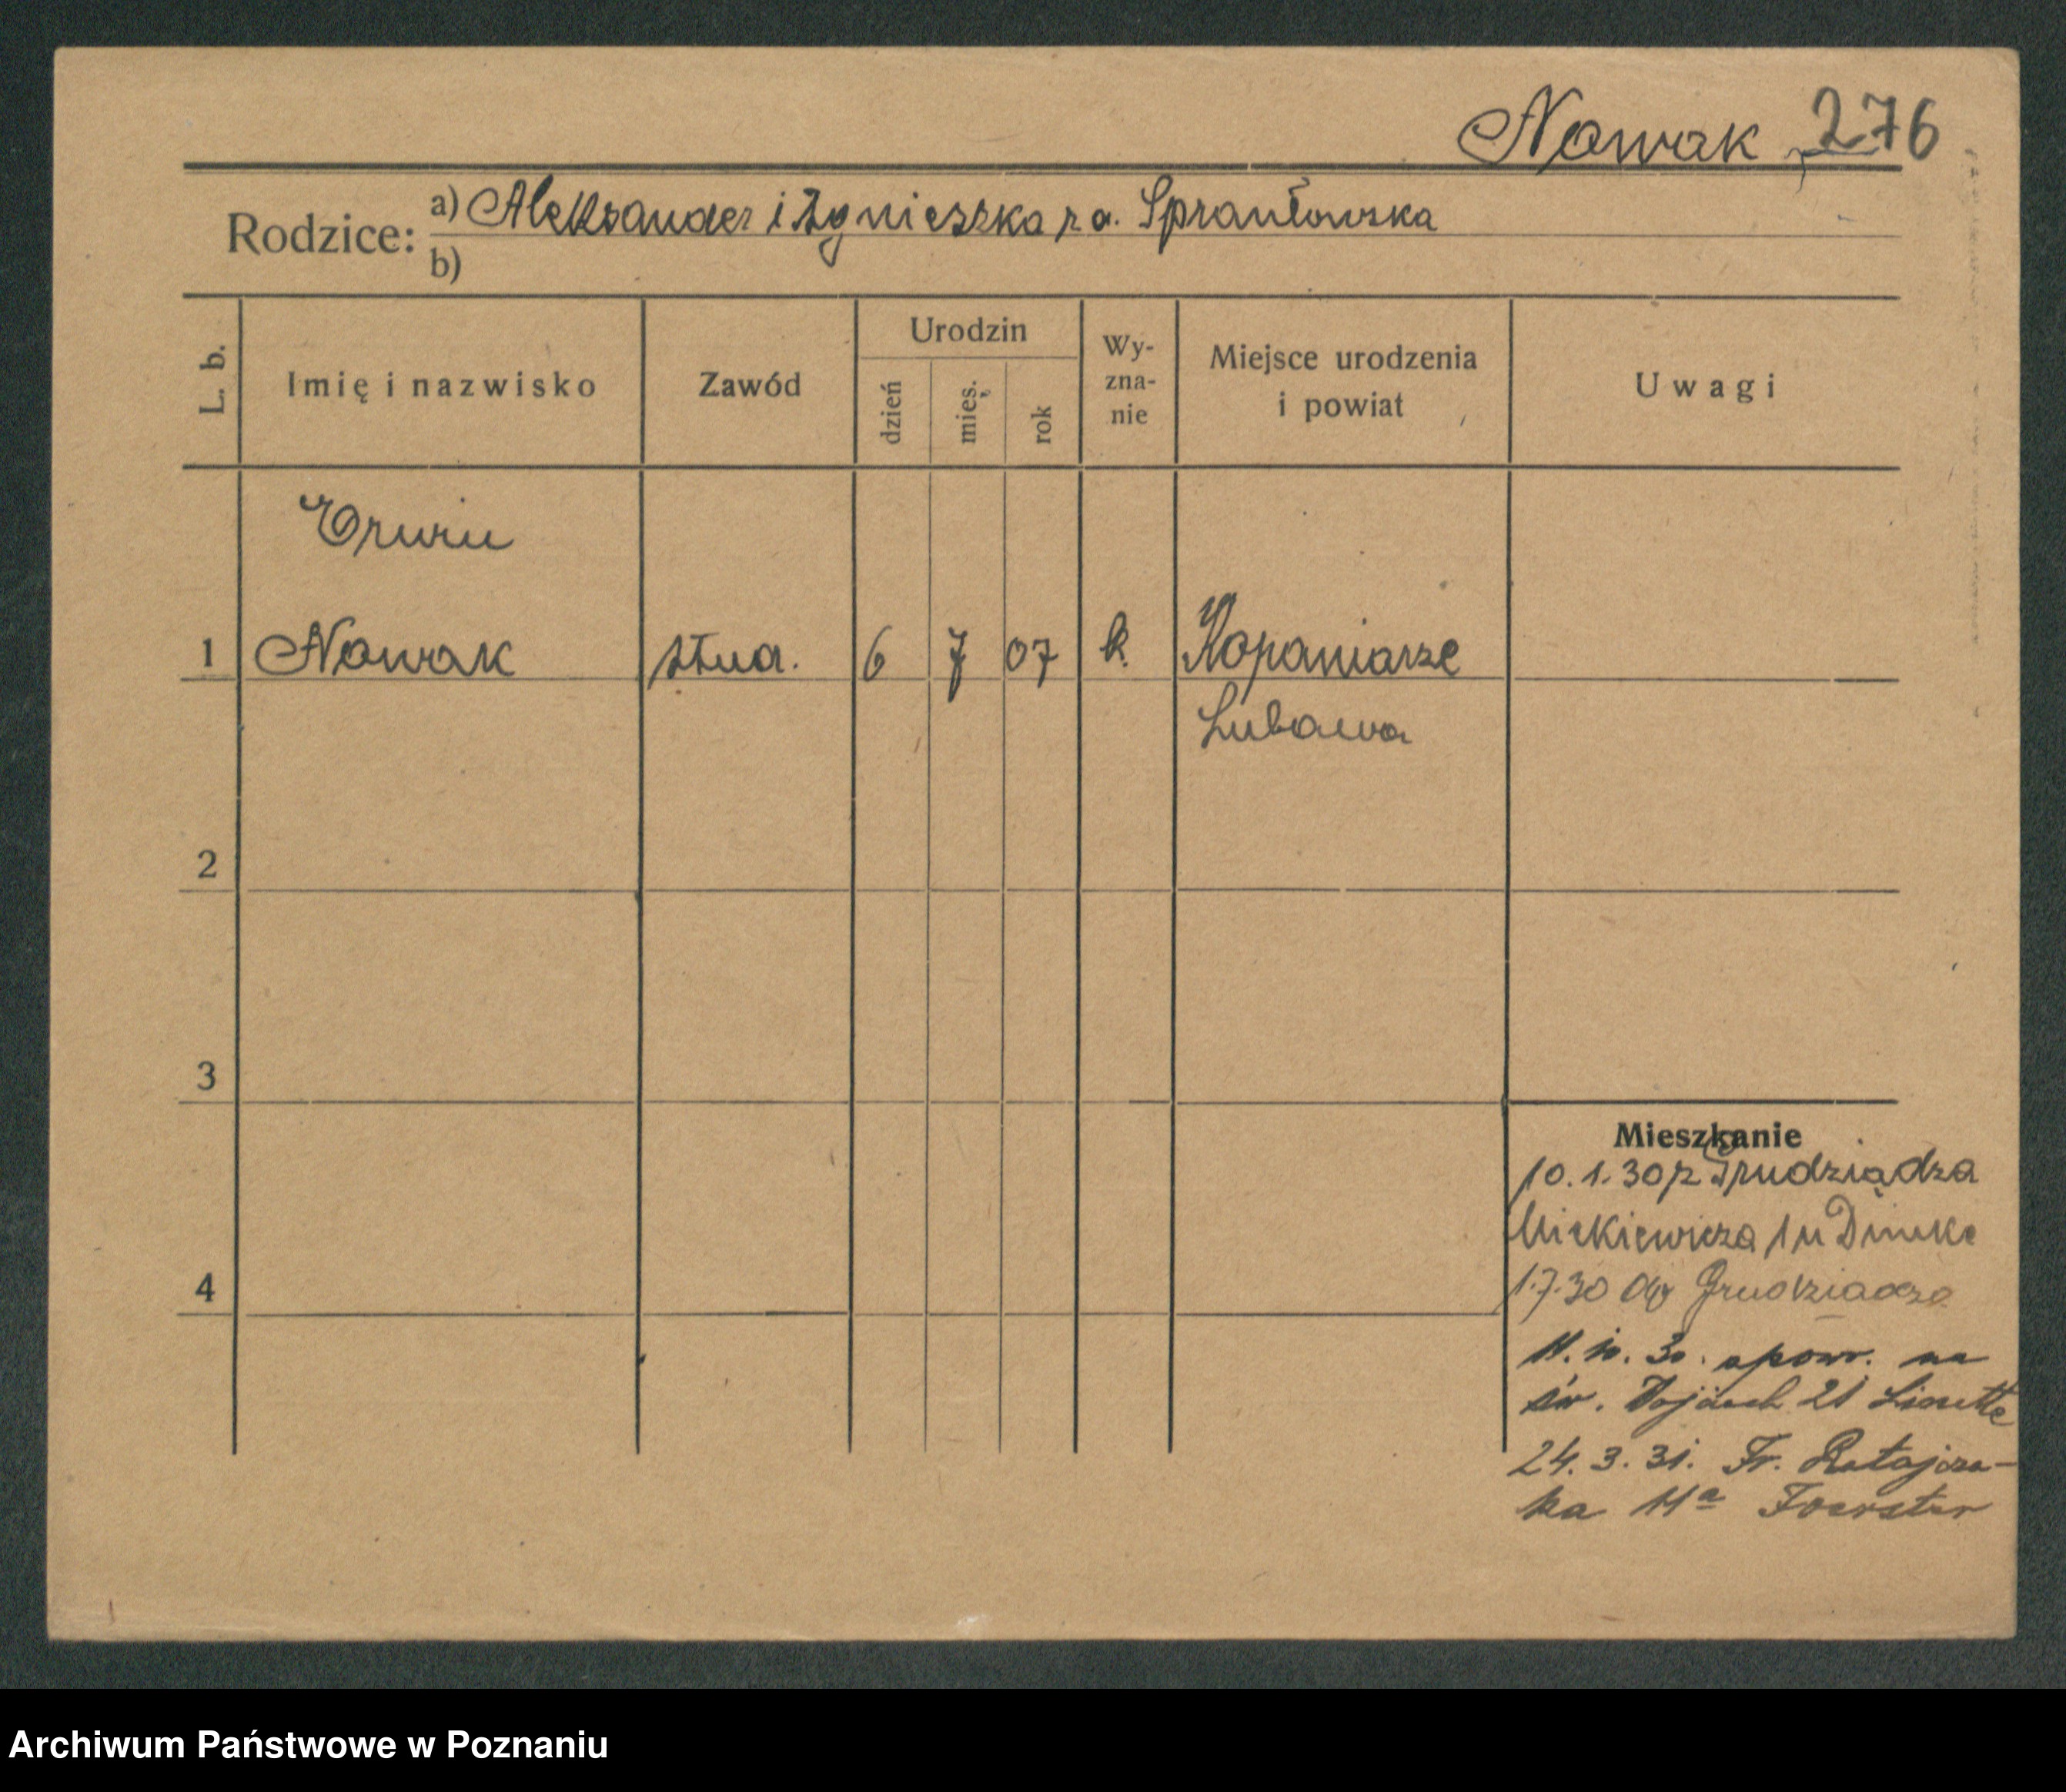 Nowak 276
Rodzice: a) Aleksander i Agnieszka z d.
b)
L. b. Imię i nazwisko Zawód Urodzin dzień mies. rok Wy-zna-nie Miejsce urodzenia i powiat Uwagi
Erwin
1 Nowak stud. 6 7 07 k. Kopaniarze
Lubawa
2
3
Mieszkanie
10.1.30 z Grudziądza
Mickiewicza 1 u
4
1.7.30 do Grudziądza
11.10.30. spowr. na
św. Wojciech 21
24.3.31. Fr. Ratajcza-
ka 11a Foerster
Archiwum Państwowe w Poznaniu